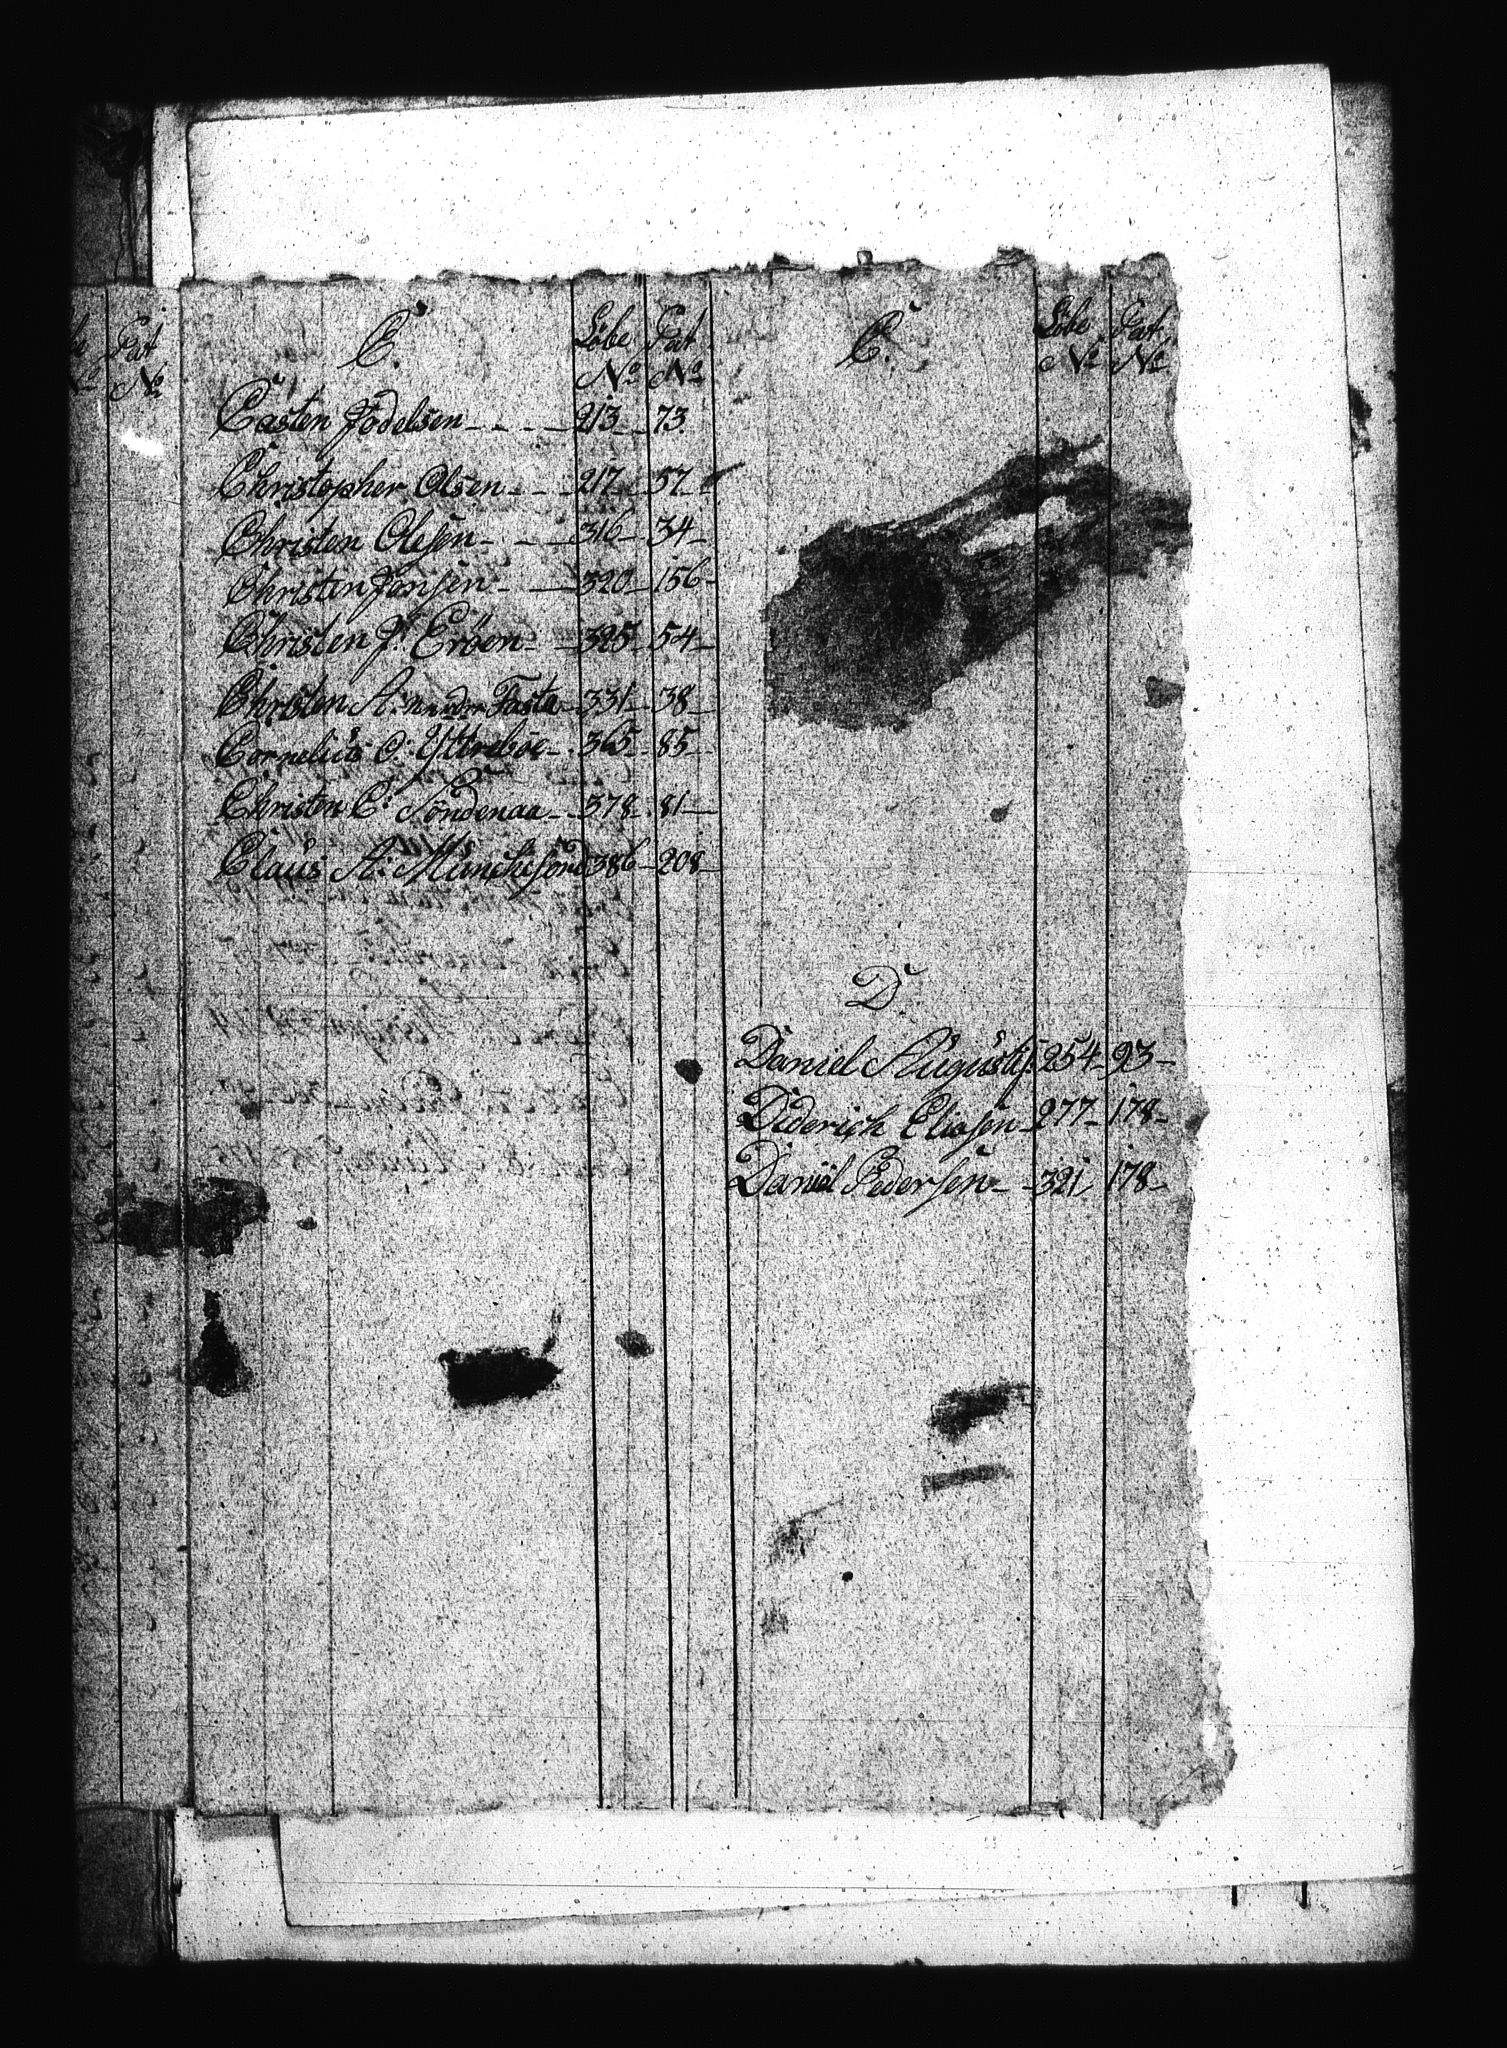 Pat
No
C.
Löbe No
Pat No
Casten Jödelsen 213 73.
Christopher Olsen 217 57
Christen Olesen 316 34
Christen Jonsen 320 156
Christen J: Eröen 325 54
Christen A: Fasta 331 38
Cornelius O: Yttreböe 365 85
Christen C: Söndenaa 378 81
Claus A: 386 208
C.
Löbe No
Pat No
D.
Daniel Augusts: 254 93
Diderich Eliasen 277 178
Daniel Pedersen 321 178